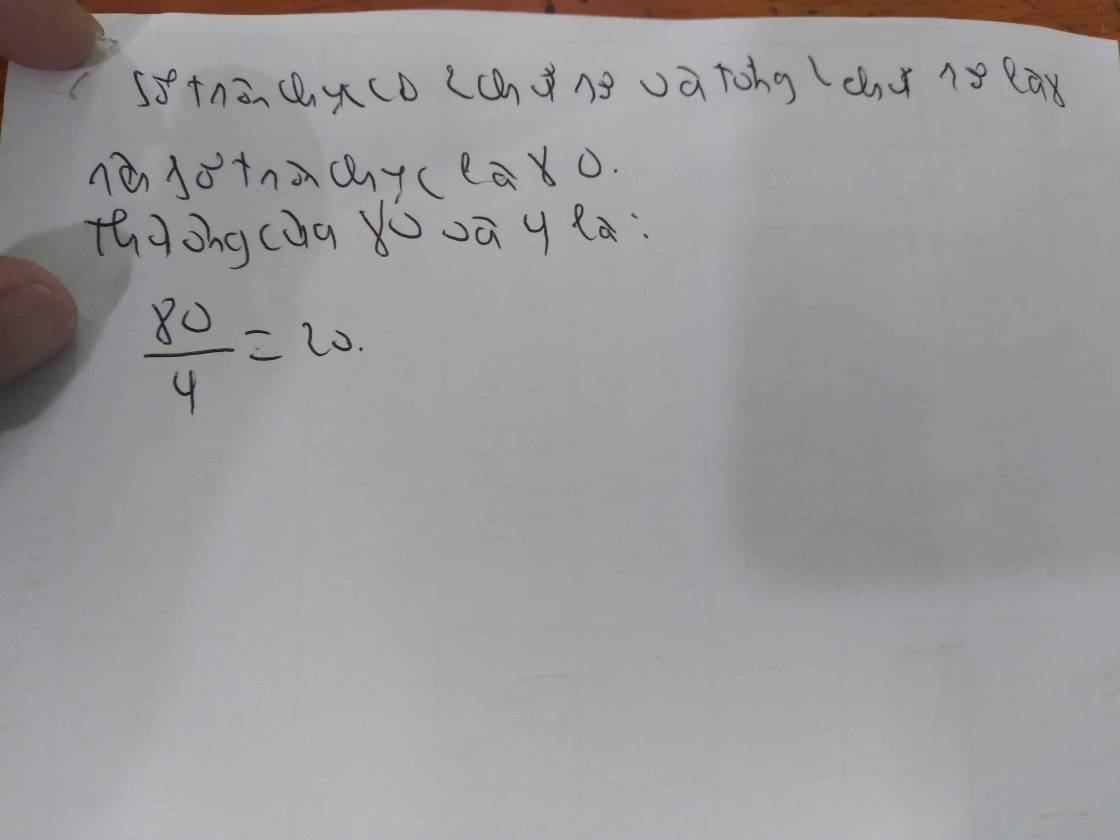 Số tròn chục có 2 chữ số và tổng 2 chữ số là 8
nên số tròn chục là 80.
Thương của 80 và 4 là:
80/4 = 20.